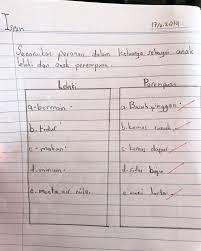 Isnin 17/6/2019
Senaraikan peranan dalam keluarga sebagai anak
lelaki dan anak perempuan.
Lelaki Perempuan
a. bermain a. Basuh pinggan
b. tidur b. kemas rumah
c. makan c. kemas dapur
d. minum d. sidai baju
e. minta air milo e.